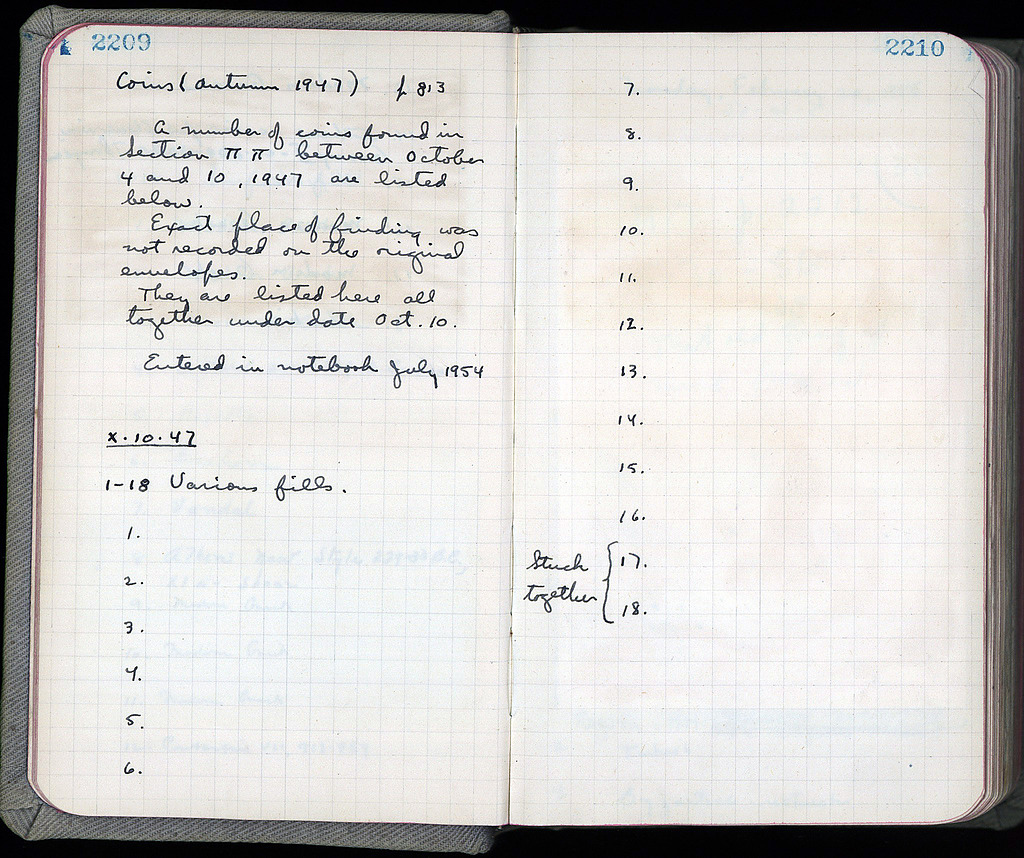 2209
Coins (autumn 1947) p 813
A number of coins found in
Section π π between October
4 and 10, 1947 are listed
below.
Exact place of finding was
not recorded on the original
envelopes.
They are listed here all
together under date Oct. 10.
Entered in notebook July 1954
X.10.47
1-18 Various fills.
1.
2.
3.
4.
5.
6.
2210
7.
8.
9.
10.
11.
12.
13.
14.
15.
16.
Stuck
together
17.
18.